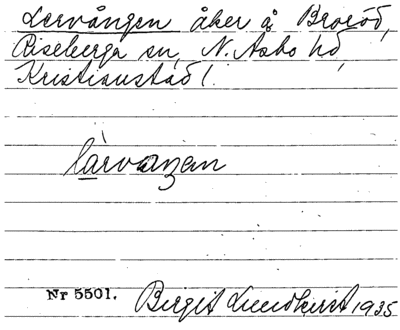 Lervången åker å Broröd,
Riseberga sn, N. Asbo hd,
Kristianstad l.
lärvaŋen
Nr 5501. Birgit Lundkvist 1935